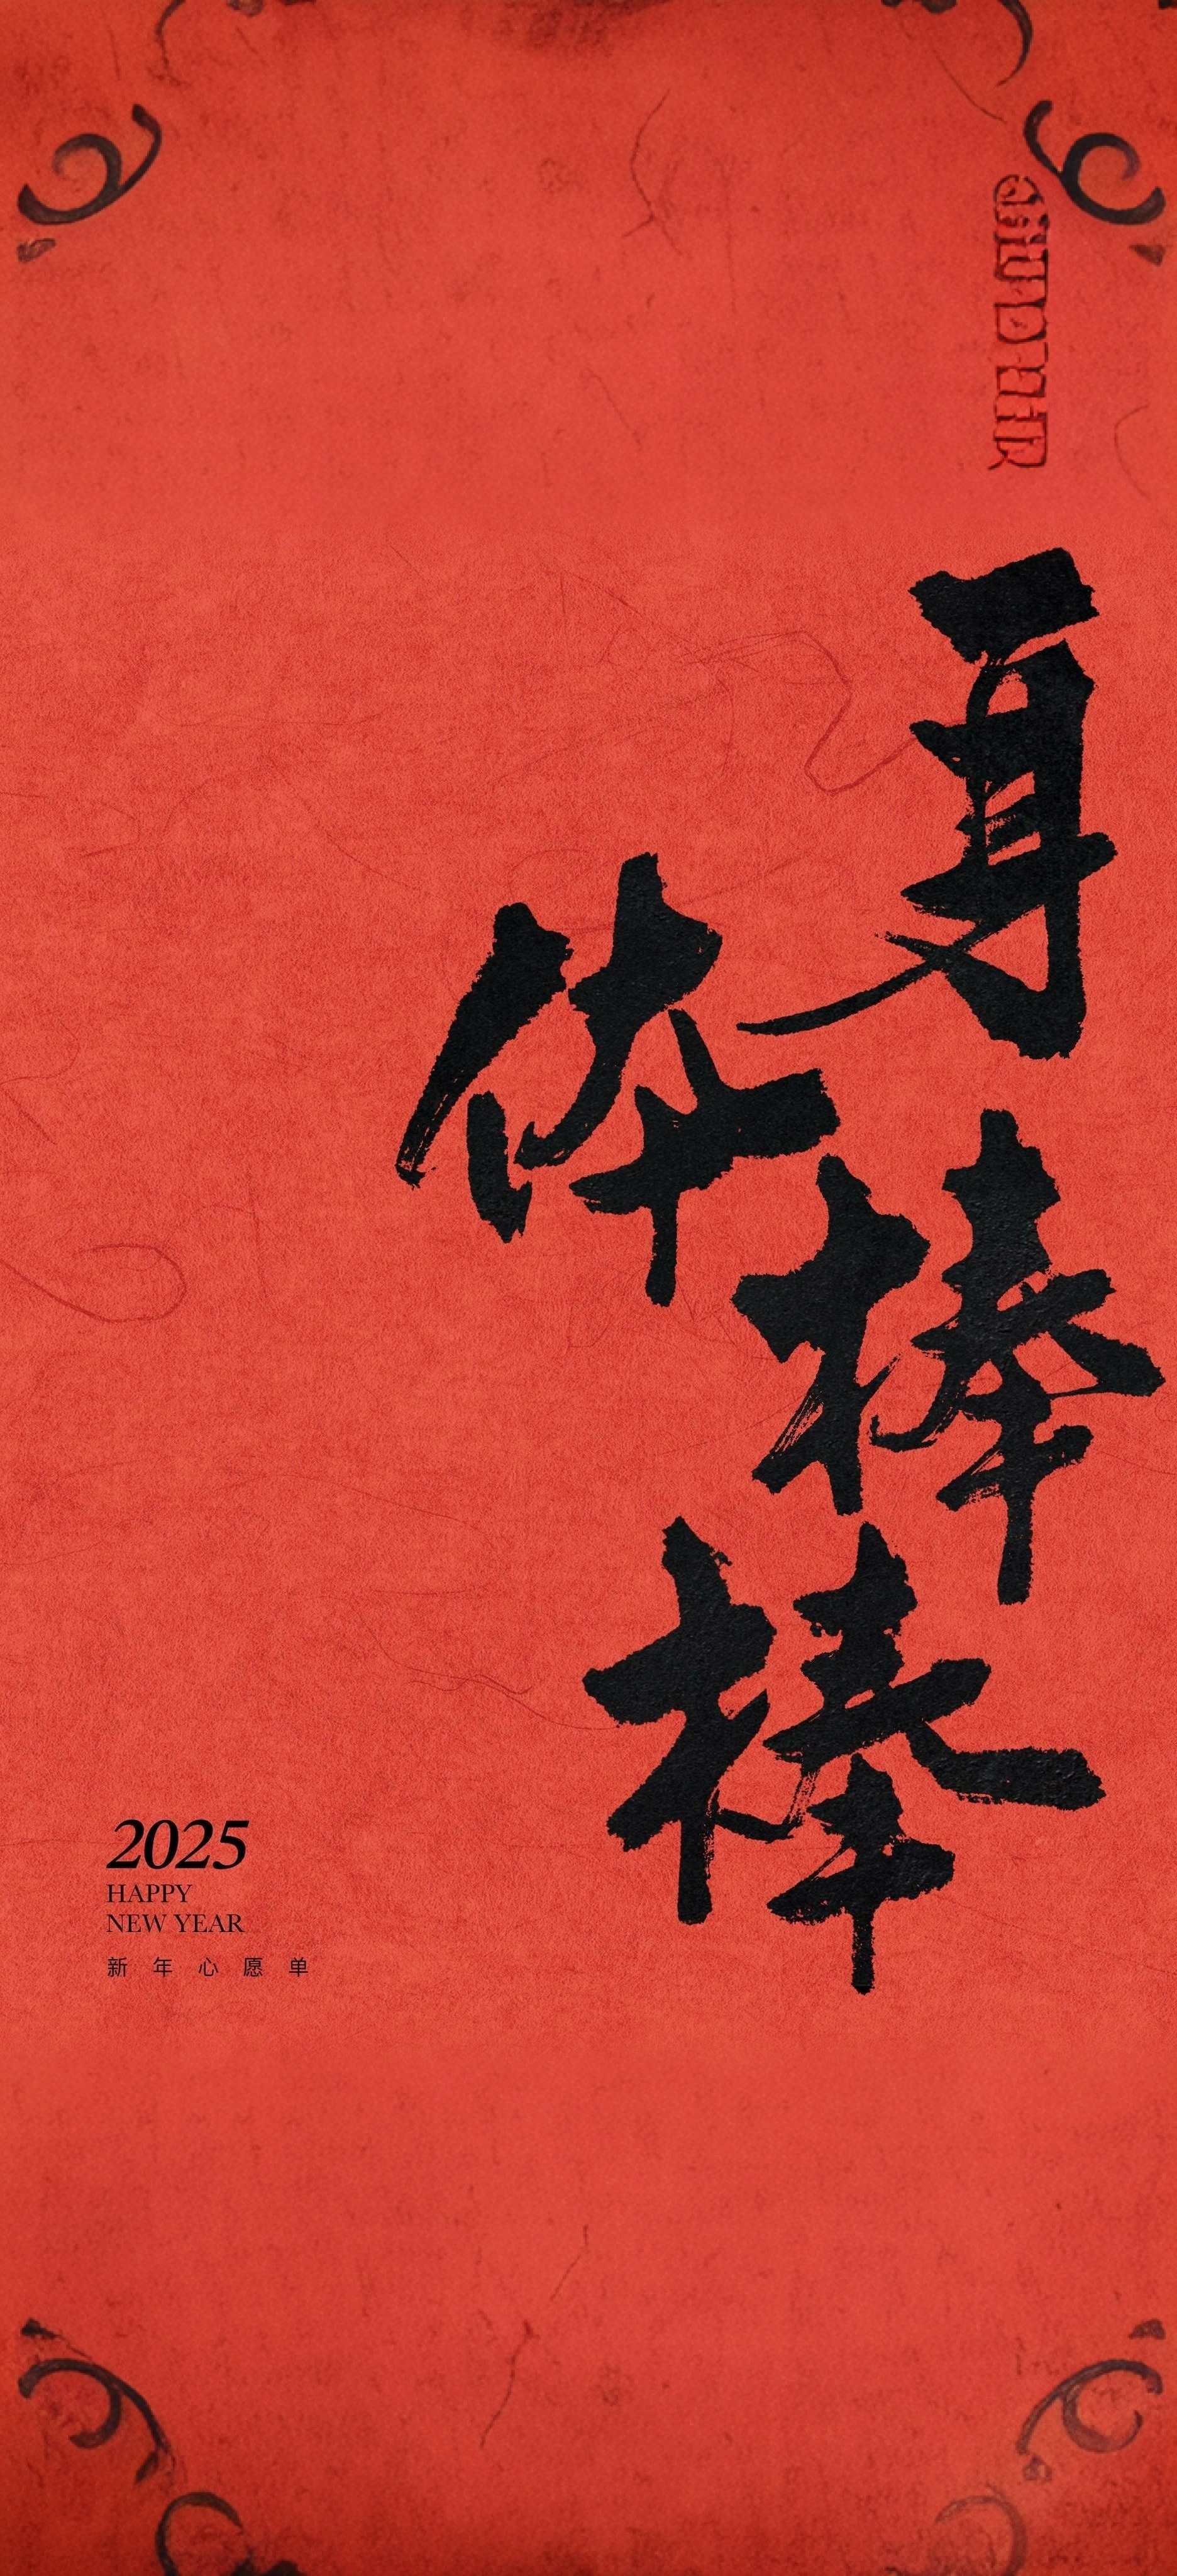 身体棒棒
2025
HAPPY
NEW YEAR
新年心愿单